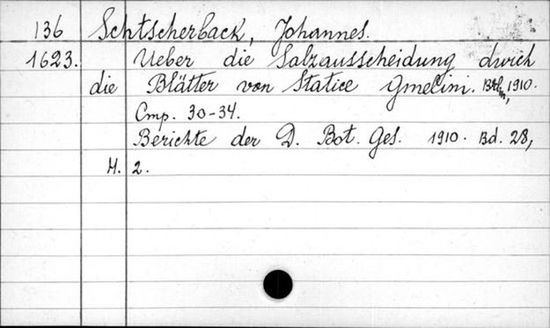 136 Schtscherback, Johannes.
1623. Ueber die Salzausscheidung durch
die Blätter von Statice Gmelini. Brln, 1910.
Стр. 30-34.
Berichte der D. Bot. Ges. 1910. Bd. 28,
H. 2.